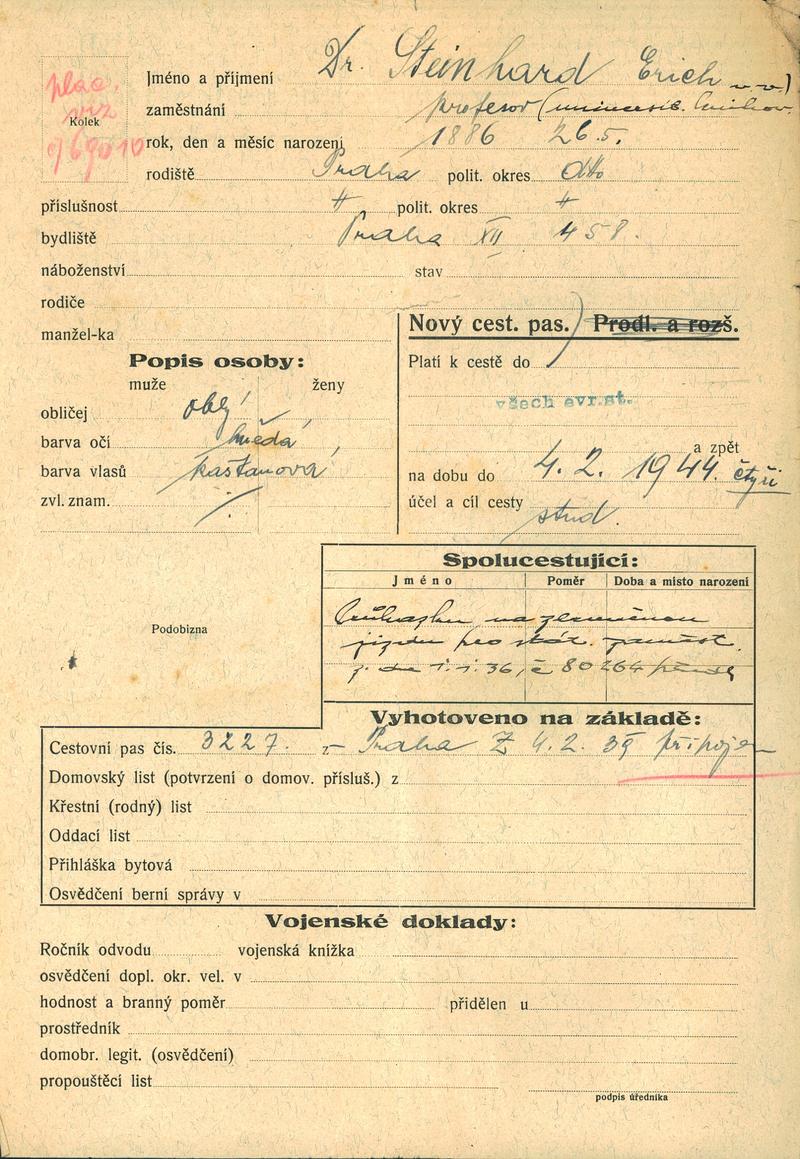 plac.
Kolek
Jméno a příjmení Dr. Steinhard Erich
zaměstnání profesor
rok, den a měsíc narození 1886 26.5.
rodiště Praha polit. okres dtto
příslušnost " polit. okres "
bydliště Praha XII 458.
náboženství stav
rodiče
manžel-ka
Nový cest. pas. Prodl. a rozš.
Platí k cestě do
všech evr. st.
a zpět
na dobu do 4. 2. 1944. čtyři
účel a cíl cesty stud.
Popis osoby:
muže ženy
obličej oblý
barva očí hnědá
barva vlasů kaštanová
zvl. znam. /.
Podobizna
Spolucestující:
Jméno Poměr Doba a místo narození
jízdu pro stát. zaměst.
36, č 80264
Vyhotoveno na základě:
Cestovní pas čís. 3227. z Praha Z 4.2. 39 připojen
Domovský list (potvrzení o domov. přísluš.) z
Křestní (rodný) list
Oddací list
Přihláška bytová
Osvědčení berní správy v
Vojenské doklady:
Ročník odvodu vojenská knížka
osvědčení dopl. okr. vel. v
hodnost a branný poměr přidělen u
prostředník
domobr. legit. (osvědčení)
propouštěcí list
podpis úředníka